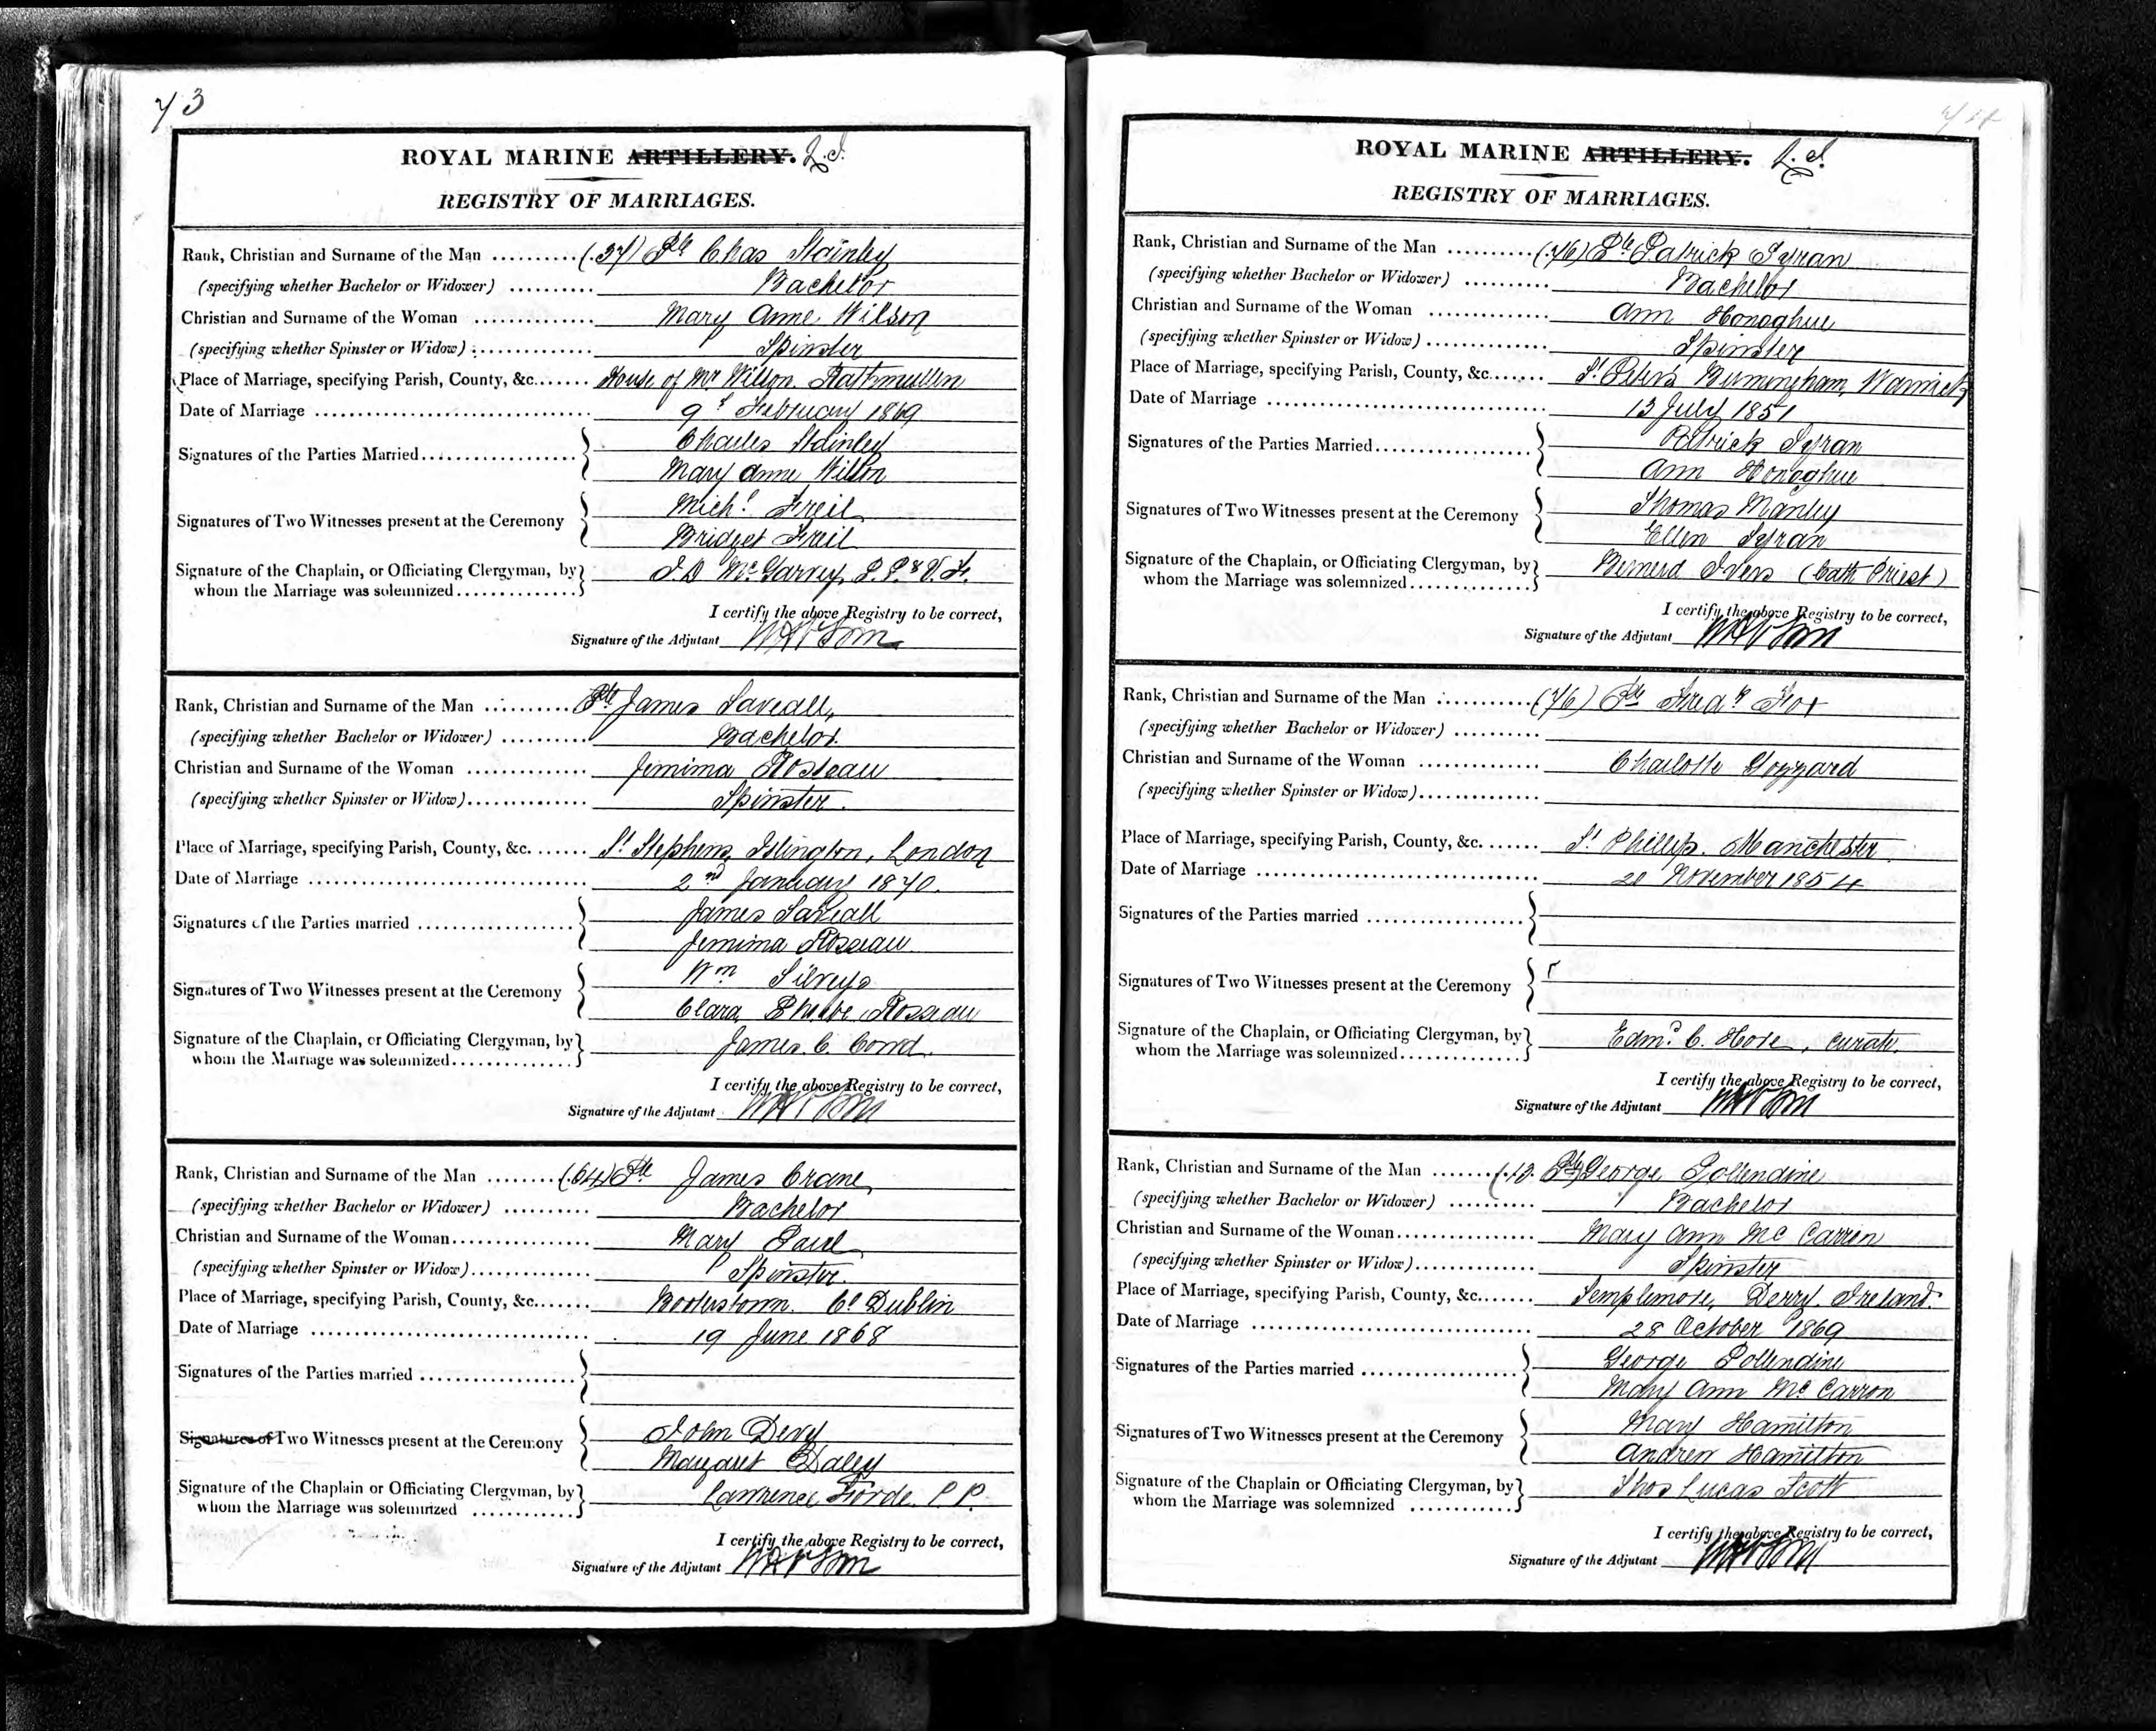 73
ROYAL MARINE ARTILLERY. L.I.
REGISTRY OF MARRIAGES.
Rank, Christian and Surname of the Man .......... (37) Pte Chas Stainley
(specifying whether Bachelor or Widower) .......... Bachelor
Christian and Surname of the Woman .............. Mary Anne Wilson
(specifying whether Spinster or Widow) .............. Spinster
Place of Marriage, specifying Parish, County, &c....... House of Mr Wilson Rathmullen
Date of Marriage ................................ 9th February 1869
Signatures of the Parties Married.................. Charles Stainley
Mary Anne Wilson
Signatures of Two Witnesses present at the Ceremony Michl Freil
Bridget Freil
Signature of the Chaplain, or Officiating Clergyman, by J.D McGarvey, P.P. & V.F.
whom the Marriage was solemnized..............
I certify the above Registry to be correct,
Signature of the Adjutant
Rank, Christian and Surname of the Man .......... Pte James Saveall,
(specifying whether Bachelor or Widower) .......... Bachelor.
Christian and Surname of the Woman .............. Jemima Rosseau
(specifying whether Spinster or Widow).............. Spinster.
Place of Marriage, specifying Parish, County, &c. ....... St Stephens, Islington, London
Date of Marriage ................................ 2nd January 1870.
Signatures of the Parties married .................. James Saveall
Jemima Rosseau
Signatures of Two Witnesses present at the Ceremony Wm
Clara Phebe Rosseau
Signature of the Chaplain, or Officiating Clergyman, by James. C.
whom the Marriage was solemnized..............
I certify the above Registry to be correct,
Signature of the Adjutant
Rank, Christian and Surname of the Man ........ (64) Pte James Crane,
(specifying whether Bachelor or Widower) .......... Bachelor
Christian and Surname of the Woman................ Mary Paul
(specifying whether Spinster or Widow).............. Spinster.
Place of Marriage, specifying Parish, County, &c....... Booterstown. Co Dublin
Date of Marriage ................................ 19 June 1868
Signatures of the Parties married ..................
Signatures of Two Witnesses present at the Ceremony John Devy
Margaret Daley
Signature of the Chaplain or Officiating Clergyman, by Lawrence Forde. P.P.
whom the Marriage was solemnized ............
I certify the above Registry to be correct,
Signature of the Adjutant
74
ROYAL MARINE ARTILLERY. L.I.
REGISTRY OF MARRIAGES.
Rank, Christian and Surname of the Man .......... (76) Pte Patrick Tyran
(specifying whether Bachelor or Widower) .......... Bachelor
Christian and Surname of the Woman .............. Ann Honoghue
(specifying whether Spinster or Widow).............. Spinster
Place of Marriage, specifying Parish, County, &c....... St Peter's Birmingham, Warwick
Date of Marriage ................................ 13 July 1851
Signatures of the Parties Married.................. Patrick Tyran
Ann Honoghue
Signatures of Two Witnesses present at the Ceremony Thomas Manley
Ellen Tyran
Signature of the Chaplain, or Officiating Clergyman, by Bernerd Ivers (Cath Priest)
whom the Marriage was solemnized..............
I certify the above Registry to be correct,
Signature of the Adjutant
Rank, Christian and Surname of the Man .......... (76) Pte Fredk Fox
(specifying whether Bachelor or Widower) ..........
Christian and Surname of the Woman .............. Charlotte Gozzard
(specifying whether Spinster or Widow)..............
Place of Marriage, specifying Parish, County, &c. ....... St Phillip. Manchester
Date of Marriage ................................ 20 November 1854
Signatures of the Parties married ..................
Signatures of Two Witnesses present at the Ceremony
Signature of the Chaplain, or Officiating Clergyman, by Edmd C. Hore, Curate.
whom the Marriage was solemnized..............
I certify the above Registry to be correct,
Signature of the Adjutant
Rank, Christian and Surname of the Man ........ (13. Pte) George Pollendine
(specifying whether Bachelor or Widower) .......... Bachelor
Christian and Surname of the Woman................ Mary Ann Mc Carron
(specifying whether Spinster or Widow).............. Spinster
Place of Marriage, specifying Parish, County, &c....... Templemore, Derry. Ireland.
Date of Marriage ................................ 28 October 1869
Signatures of the Parties married .................. George Pollendine
Mary Ann Mc Carron
Signatures of Two Witnesses present at the Ceremony Mary Hamilton
Andrew Hamilton
Signature of the Chaplain or Officiating Clergyman, by Thos Lucas Scott
whom the Marriage was solemnized ............
I certify the above Registry to be correct,
Signature of the Adjutant